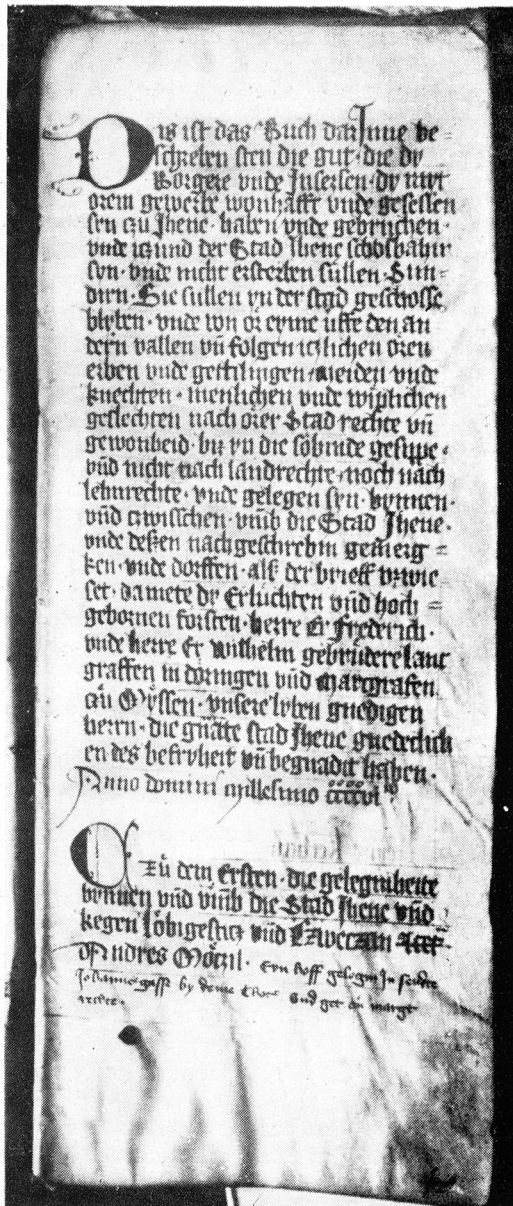 Dis ist das Buch dar Inne be=
schreben sten die gut · die dy
Borgere vnde Insessen · dy mit
orem gewerke wonhafft vnde gesessen
sen czu Jhene · haben vnde gebruchen ·
vnde iczund der Stad Jhene schosbahir
syn · vnde nicht ersterben sullen · Sun=
dirn · Sie sullen yn der stad geschosse
blyben · vnde von or eyme uffe den an
dern vallen vn̄ folgen iczlichen oren
erben vnde gestilingen meiden vnde
knechten · menlichen vnde wiplichen
geslechten nach orer Stad rechte vn̄
gewonheid · biz yn die sobinde gesippe ·
vnd nicht nach landrechte · noch nach
lehnrechte · vnde gelegen syn · bynnen ·
vnd czwisschen · vmb die Stad Jhene ·
vnde deßen nachgeschrebin gemerg=
ken · vnde dorffen · alß der brieff vzwie
set · damete dy Erluchten vnd hoch=
gebornen forsten · herre Er Frederich ·
vnde herre Er Wilhelm gebrudere lant
graffen in doringen vnd marcgrafen
czu Myssen · vnsere lyben gnedigen
herrn · die gnāte stad Jhene gnedeclich
en des befryheit vn̄ begnadit haben ·
Anno domini millesimo ccccvi
Czu dem Ersten · die geleginheite
bynnen vnd vmb die Stad Jhene vnd
kegen lobigesticz vnd Czweczin
Andres Moczil · Eyn hoff gelegen In sendte
Johannes gasse by deme Thore vnd get an margt